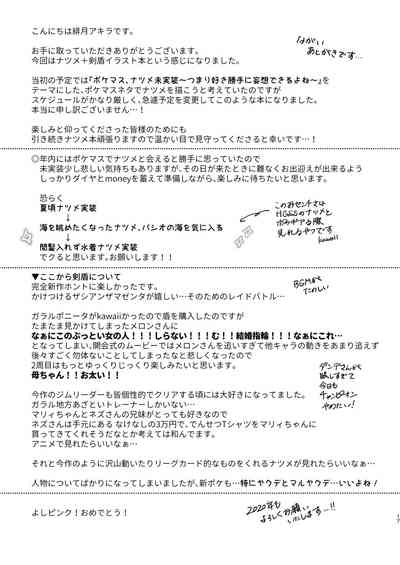 こんにちは緋月アキラです。
ながい
あとがきです…
お手に取っていただきありがとうございます。
今回はナツメ+剣盾イラスト本という感じになりました。
当初の予定では『ポケマス、ナツメ未実装～つまり好き勝手に妄想できるよね～』を
テーマにした、ポケマスネタでナツメを描こうと考えていたのですが
スケジュールがかなり厳しく、急遽予定を変更してこのような本になりました。
本当に申し訳ございません…！
楽しみと仰ってくださった皆様のためにも
引き続きナツメ本頑張りますので温かい目で見守ってくださると幸いです…！
◎年内にはポケマスでナツメと会えると勝手に思っていたので
未実装少し悲しい気持ちもありますが、その日が来たときに難なくお出迎えが出来るよう
しっかりダイヤとmoneyを蓄えて準備しながら、楽しみに待ちたいと思います。
恐らく
夏頃ナツメ実装
↓
海を眺めたくなったナツメ、パシオの海を気に入る
↓
間髪入れず水着ナツメ実装
でくると思います。お願いします！！
HGSSのナツメと
kawaii
▼ここから剣盾について
完全新作ホントに楽しかったです。
かけつけるザシアンザマゼンタが嬉しい…そのためのレイドバトル…
BGMが
たのしい
ガラルポニータがkawaiiかったので盾を購入したのですが
たまたま見かけてしまったメロンさんに
なぁにこのぶっとい女の人！！！しらない！！！む！！結婚指輪！！！なぁにこれ…
となってしまい、開会式のムービーではメロンさんを追いすぎて他キャラの動きをあまり追えず
後々すごく勿体ないことしてしまったなと悲しくなったので
2周目はもっとゆっくりじっくり楽しみたいと思います。
母ちゃん！！お太い！！
今作のジムリーダーも皆個性的でクリアする頃には大好きになってました。
ガラル地方あざといトレーナーしかいない…
マリィちゃんとネズさんの兄妹がとっても好きなので
ネズさんは手元にある なけなしの3万円で、でんせつTシャツをマリィちゃんに
買ってきてくれそうだなとか考えては和んでます。
アニメで見れたらいいなぁ…
今日も
チャンピオン
やめたい！
それと今作のように沢山動いたりリーグカード的なものをくれるナツメが見れたらいいなぁ…
人物についてばかりになってしまいましたが、新ポケも…特にヤクデとマルヤクデ…いいよね！
よしピンク！おめでとう！
2020年も
よろしくお願い
いたします…!!